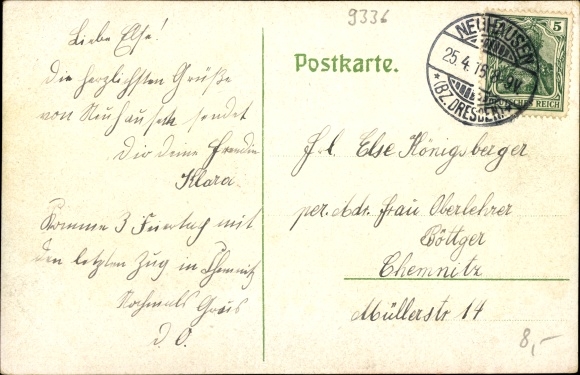 9336
Liebe Else!
die herzlichsten Grüße
von Neuhausen sendet
dir deine Freundin
Klara
Komme 3 Feiertag mit
den letzten Zug in Chemnitz
Nochmals Gruß
d. O.
Postkarte.
NEUHAUSEN
25.4.
*(BZ.DRESDEN)*
5
DEUTSCHES REICH
Frl. Else Königsberger
per. Adr. Frau Oberlehrer
Böttger
Chemnitz
Müllerstr 14
8,-